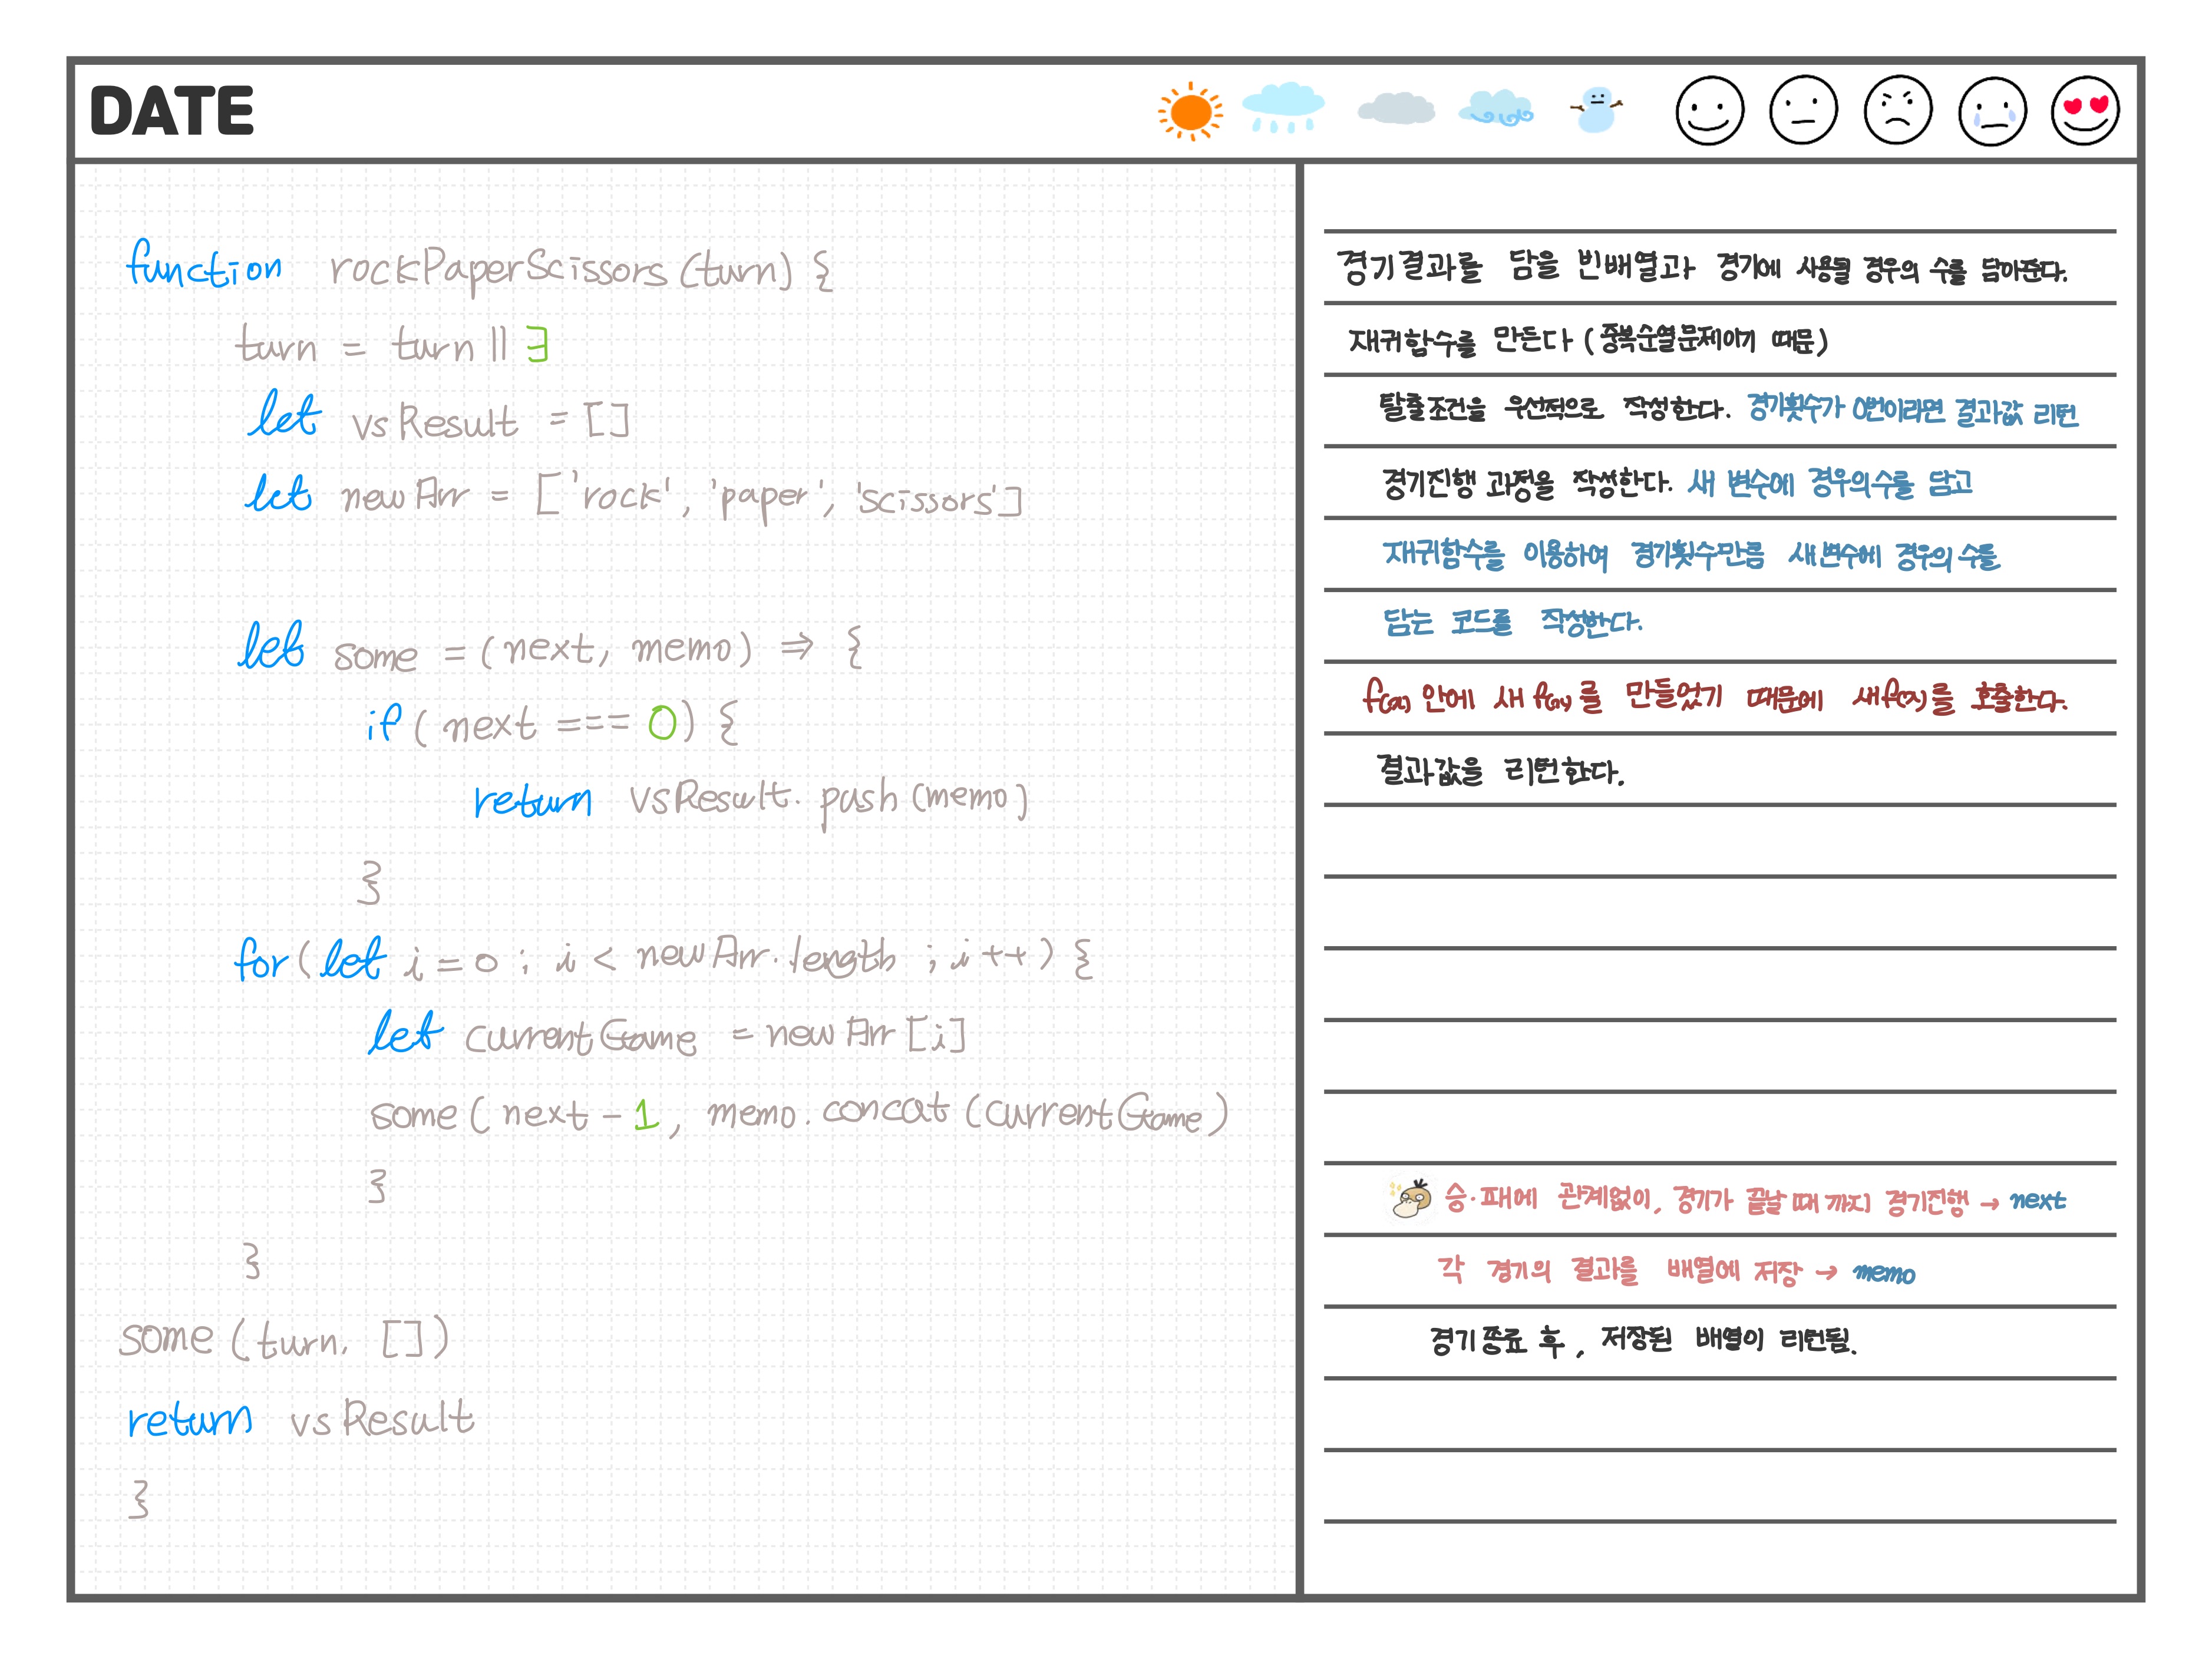 DATE
function rockPaperScissors (turn) {
turn = turn || 3
let vsResult = []
let newArr = ['rock', 'paper', 'scissors']
let some = (next, memo) => {
if ( next === 0) {
return vsResult. push (memo)
}
for ( let i = 0 ; i < newArr. length ; i ++ ) {
let currentGame = newArr [i]
some ( next - 1 , memo. concat (currentGame )
}
}
some (turn. [])
return vsResult
}
경기결과를 담을 빈배열과 경기에 사용될 경우의 수를 담아준다.
재귀함수를 만든다 (중복순열문제이기 때문)
탈출조건을 우선적으로 작성한다. 경기횟수가 0번이라면 결과값 리턴
경기진행 과정을 작성한다. 새 변수에 경우의수를 담고
재귀함수를 이용하여 경기횟수만큼 새변수에 경우의 수를
담는 코드를 작성한다.
f(x) 안에 새 f(x)를 만들었기 때문에 새f(x)를 호출한다.
결과값을 리턴한다.
승·패에 관계없이, 경기가 끝날 때 까지 경기진행 → next
각 경기의 결과를 배열에 저장 → memo
경기종료 후, 저장된 배열이 리턴됨.